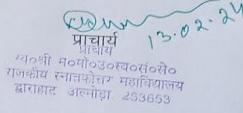 13.02.24
प्राचार्य
प्राचार्य
स्व०श्री म०मो०उ०स्व०सं०से०
राजकीय स्नातकोत्तर महाविद्यालय
द्वाराहाट अल्मोड़ा. 263653